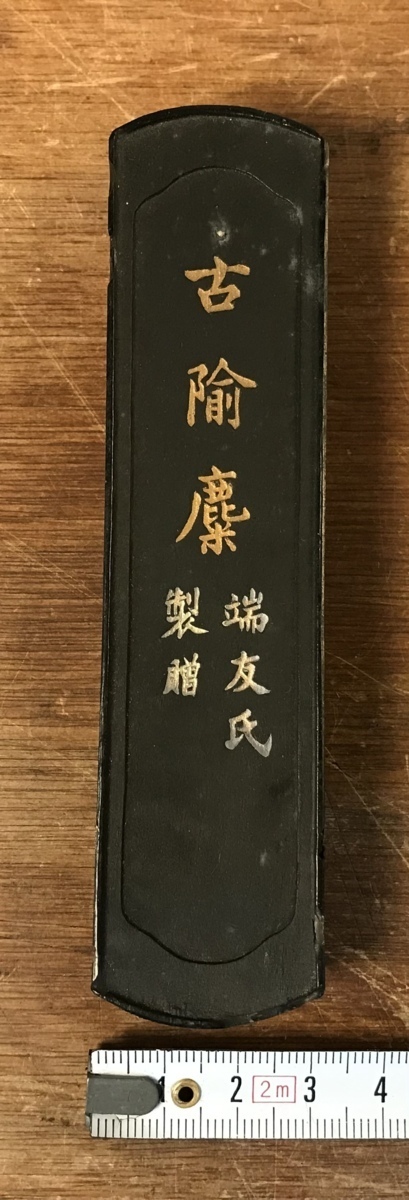 古隃麋
端友氏
製贈
1 2 2m 3 4